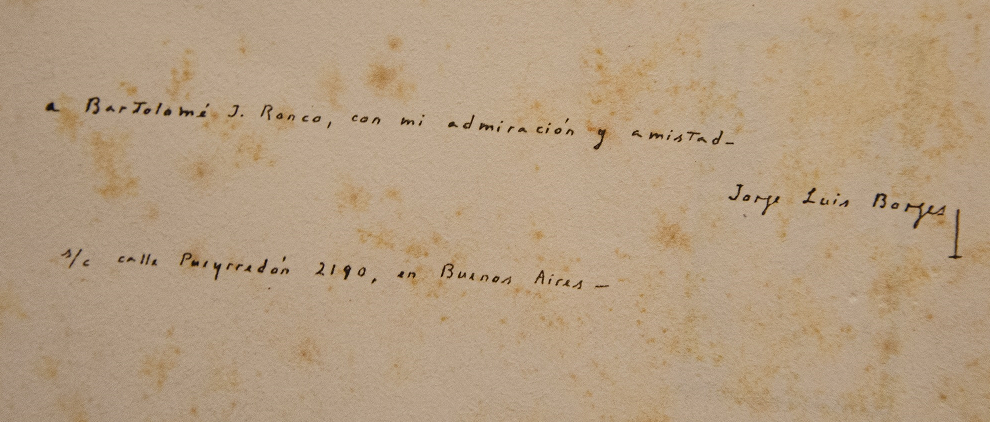 a Bartolomé J. Ronco, con mi admiración y amistad—
Jorge Luis Borges
s/c calle Pueyrredón 2190, en Buenos Aires—